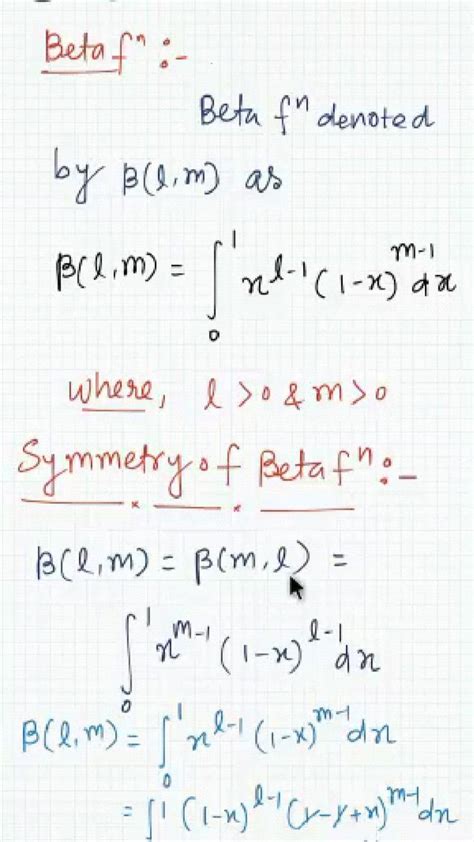 Beta fⁿ :-
Beta fⁿ denoted
by β(l,m) as
β(l,m) = ∫₀¹ x^{l-1} (1-x)^{m-1} dx
where, l >0 & m >0
Symmetry of Beta fⁿ :-
β(l,m) = β(m,l) =
∫₀¹ x^{m-1} (1-x)^{l-1} dx
β(l,m) = ∫₀¹ x^{l-1} (1-x)^{m-1} dx
= ∫¹ (1-x)^{l-1} (1-1+x)^{m-1} dx